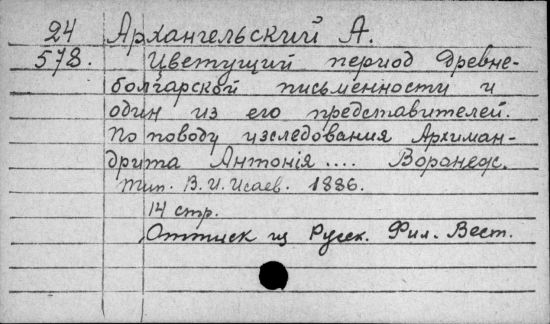 24 Архангельский А.
578. Цветущий период древне-
болгарской письменности и
один из его представителей.
По поводу изследования Архиман-
дрита Антонія .... Воронеж.
тип. В. И. Исаев. 1886.
14 стр.
Оттиск из Русск. Фил. Вест.